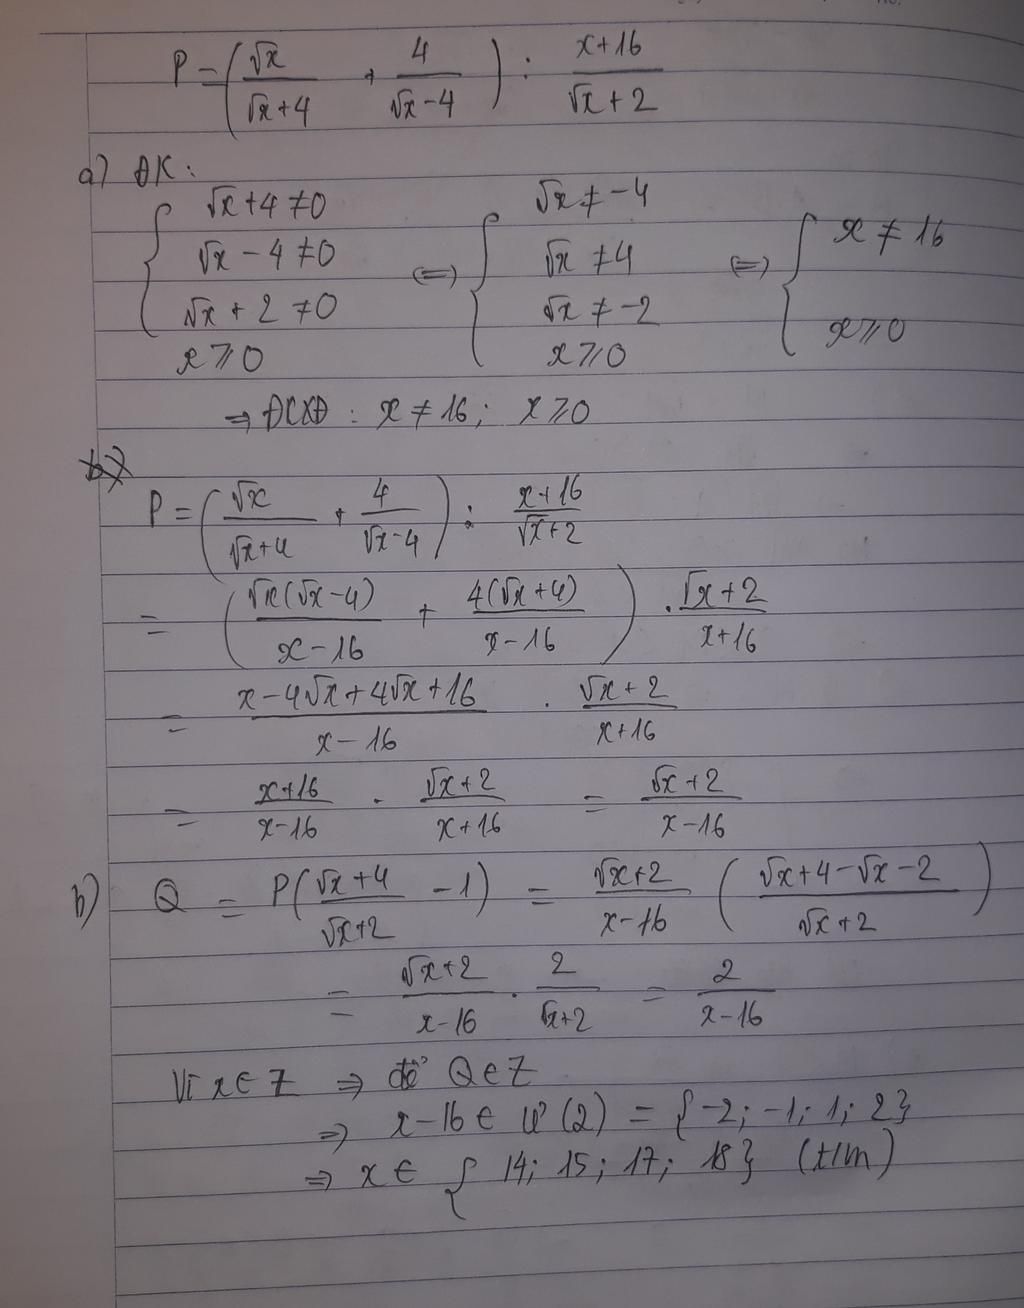 P = (√x/(√x+4) + 4/(√x-4)) : (x+16)/(√x+2)
a) ĐK:
{ √x+4 ≠ 0; √x-4 ≠ 0; √x+2 ≠ 0; x ≥ 0 ⇔ { √x ≠ -4; √x ≠ 4; √x ≠ -2; x ≥ 0 ⇔ { x ≠ 16; x ≥ 0
⇒ ĐCXĐ : x ≠ 16; x ≥ 0
b)
P = (√x/(√x+4) + 4/(√x-4)) : (x+16)/(√x+2)
= (√x(√x-4)/(x-16) + 4(√x+4)/(x-16)) . (√x+2)/(x+16)
= (x-4√x+4√x+16)/(x-16) . (√x+2)/(x+16)
= (x+16)/(x-16) . (√x+2)/(x+16) = (√x+2)/(x-16)
b) Q = P((√x+4)/(√x+2) - 1) = (√x+2)/(x-16) ((√x+4-√x-2)/(√x+2))
= (√x+2)/(x-16) . 2/(√x+2) = 2/(x-16)
Vì x ∈ Z ⇒ để Q ∈ Z
⇒ x-16 ∈ Ư(2) = {-2; -1; 1; 2}
⇒ x ∈ { 14; 15; 17; 18} (t/m)